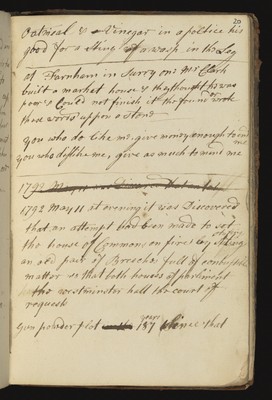 20
Oatmeal & Vinegar in a poltice his
good for a sting of a wasp in his Leg
at Farnham in Surry one Mr Clark
built a market house & they thought he was
poor & Could not finish it the found wrote
these words upon a stone
you who do like me give money enough to end me
you who dislike me, give as much to mend me
1792 May
1792 May 11 at evening it was Discovered
that an attempt had been made to set
the house of Commons on fire by
an old pair of Breeches full of combustible
matter so that both houses of parliment
the westminster hall the court of
requests
Gun powder plot 187 years since that